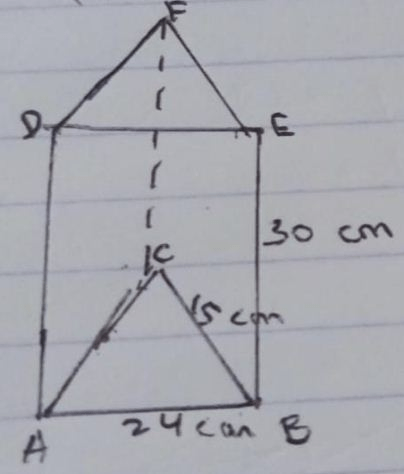 F
D
E
30 cm
C
15 cm
24 cm
A
B